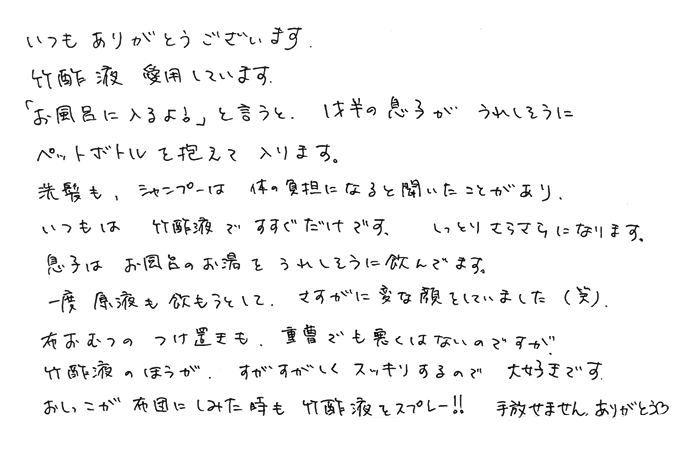 いつもありがとうございます.
竹酢液 愛用しています.
「お風呂に入るよる」と言うと、 1才半の息子が うれしそうに
ペットボトルを抱えて入ります。
洗髪も、シャンプーは 体の負担になると聞いたことがあり、
いつもは 竹酢液ですすぐだけです、 しっとりさらさらになります。
息子は お風呂のお湯を うれしそうに飲んでます。
一度 原液も飲もうとして、 さすがに変な顔をしていました(笑).
布おむつの つけ置きも、重曹でも悪くはないのですが、
竹酢液のほうが、 すがすがしくスッキリするので 大好きです.
おしっこが布団にしみた時も竹酢液をスプレー!! 手放せません、ありがとう♡